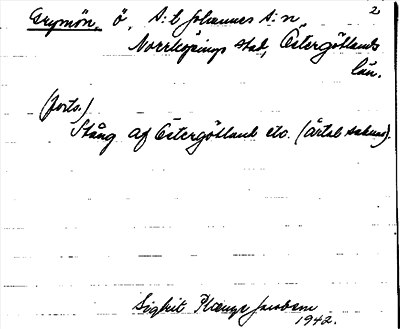 Grymön, ö, S:t Johannes s:n 2
Norrköpings stad, Östergötlands
län.
(forts.)
Stång af Östergötland etc. (årtal saknas).
Sigrit Jacobson
1942.